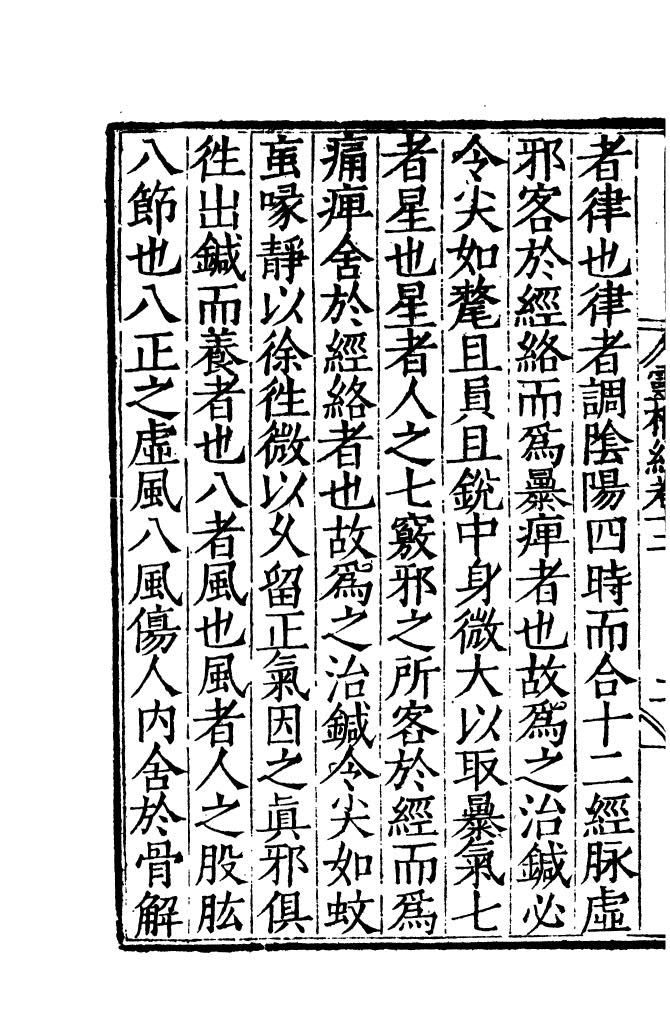 者律也律者調陰陽四時而合十二經脉虛
邪客於經絡而爲㬥痺者也故爲之治鍼必
令尖如氂且員且銳中身微大以取㬥氣七
者星也星者人之七竅邪之所客於經而爲
痛痺舍於經絡者也故爲之治鍼令尖如蚊
䖟喙靜以徐徃微以久留正氣因之眞邪俱
徃出鍼而養者也八者風也風者人之股肱
八節也八正之虛風八風傷人内舍於骨解